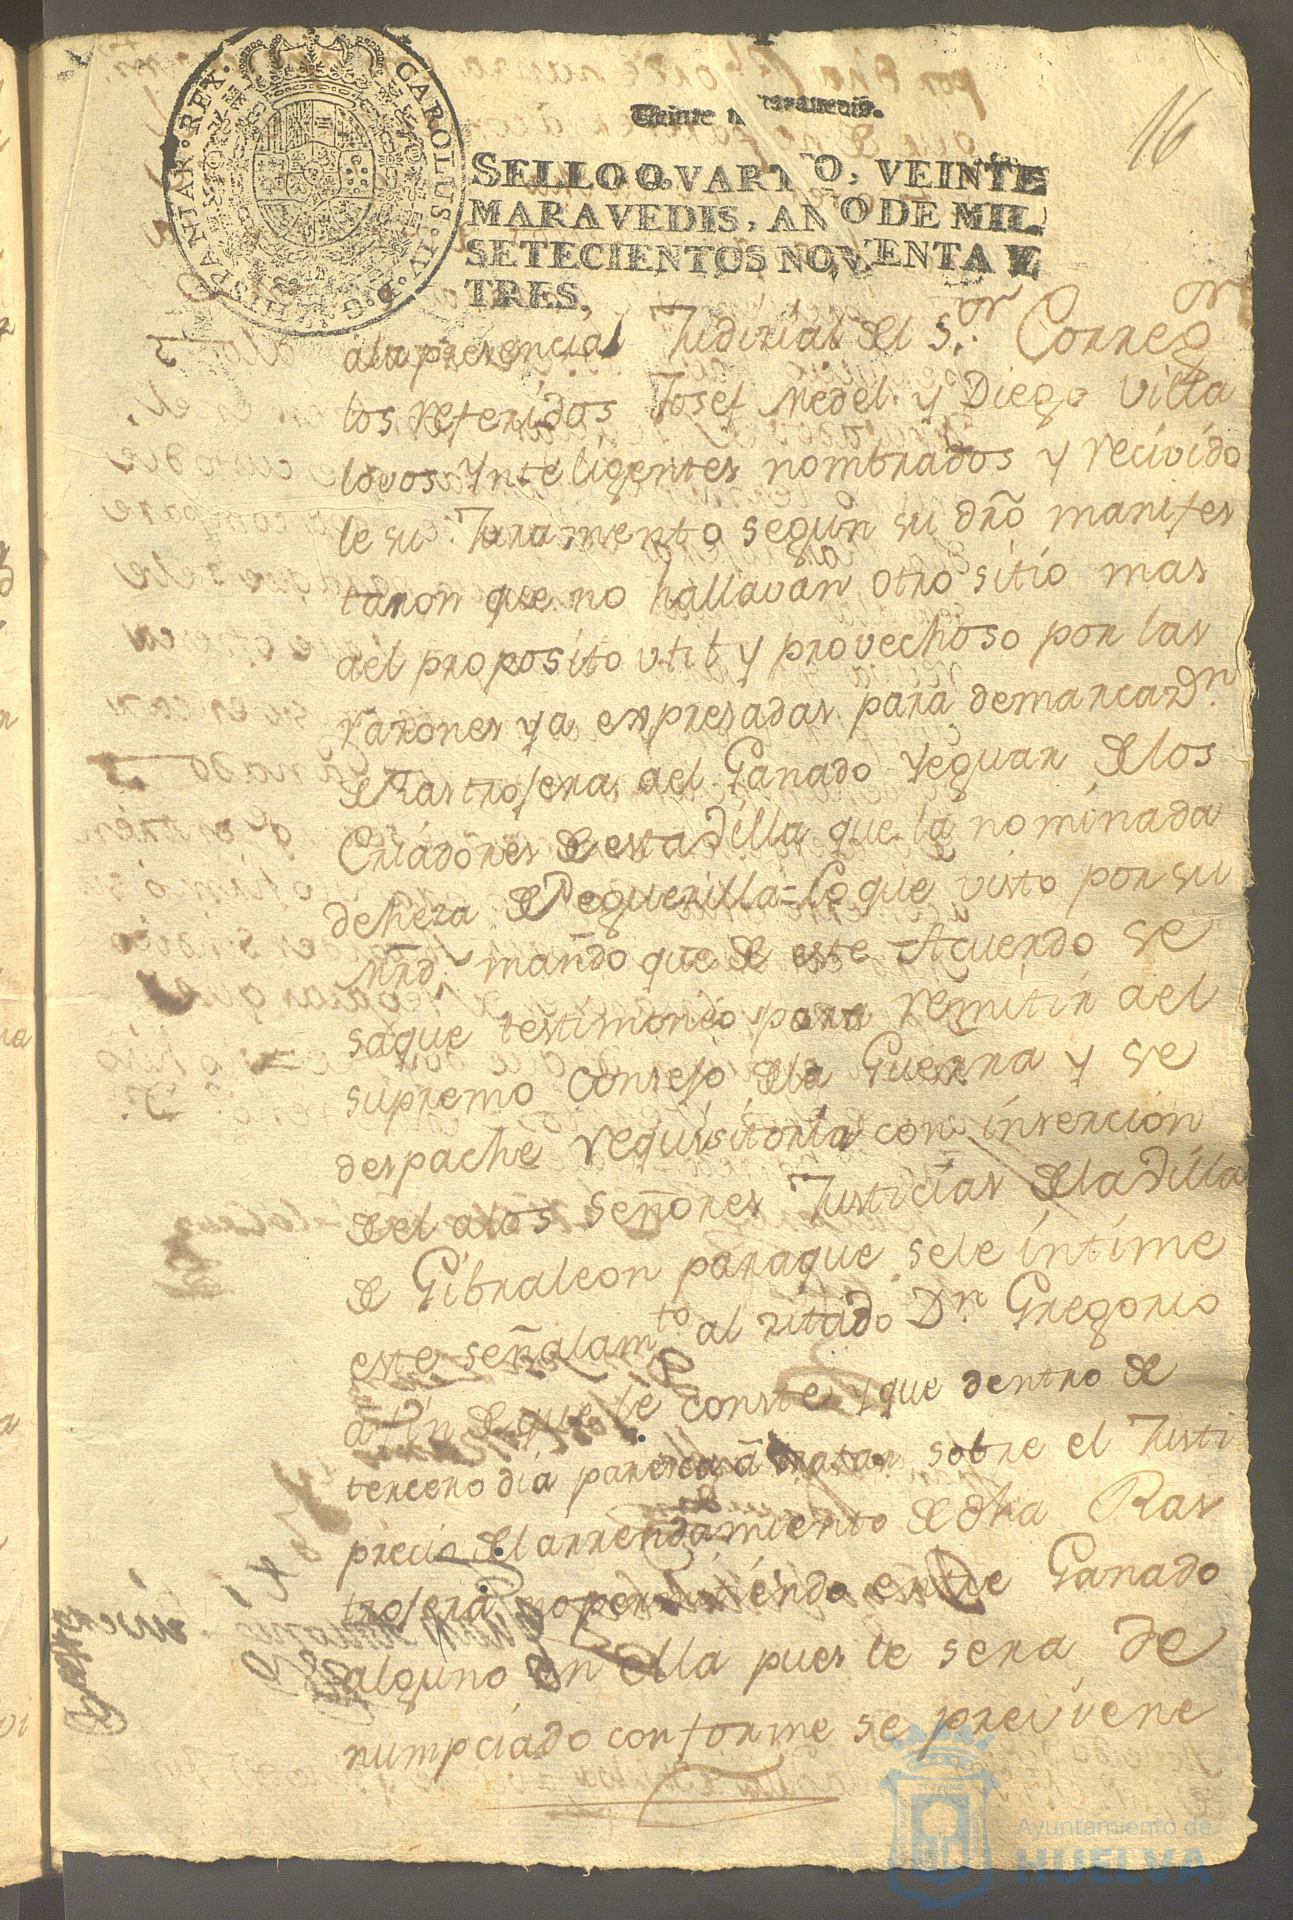 16
Veinte maravedis.
CAROLUS·IV·D·G·HISPANIAR·REX·
SELLO QVARTO, VEINTE
MARAVEDIS, AÑO DE MIL
SETECIENTOS NOVENTA Y
TRES.
ala presencia Judizial del S.or Correg.or
los referidos Josef Medel y Diego Villa
lovos Ynteligentes nombrados y recivido
le su Juramento segun su dro manifes
taron que no hallavan otro sitio mas
del proposito util y provechoso por las
razones ya expresadas para demarcaz.on
de Rastrojera del Ganado Yeguar de los
Criadores de esta Villa que la nominada
deheza de Peguerilla = Lo que visto por su
Mrd. mando que de este Acuerdo se
saque testimonio para remitir ael
supremo Consejo de la Guerra y se
despache requisitoria con inserción
de el alos Señores Justicias de la Villa
de Gibraleon paraque sele intime
este señalam.to al zitado D.n Gregorio
a fin de que le conste y que dentro de
tercero dia paresca á tratar sobre el Justi
precio del arrendamiento de dha Ras
trojera no permitiendo entre Ganado
alguno en ella pues le sera de
numpciado conforme se previene
Ayuntamiento de
HUELVA